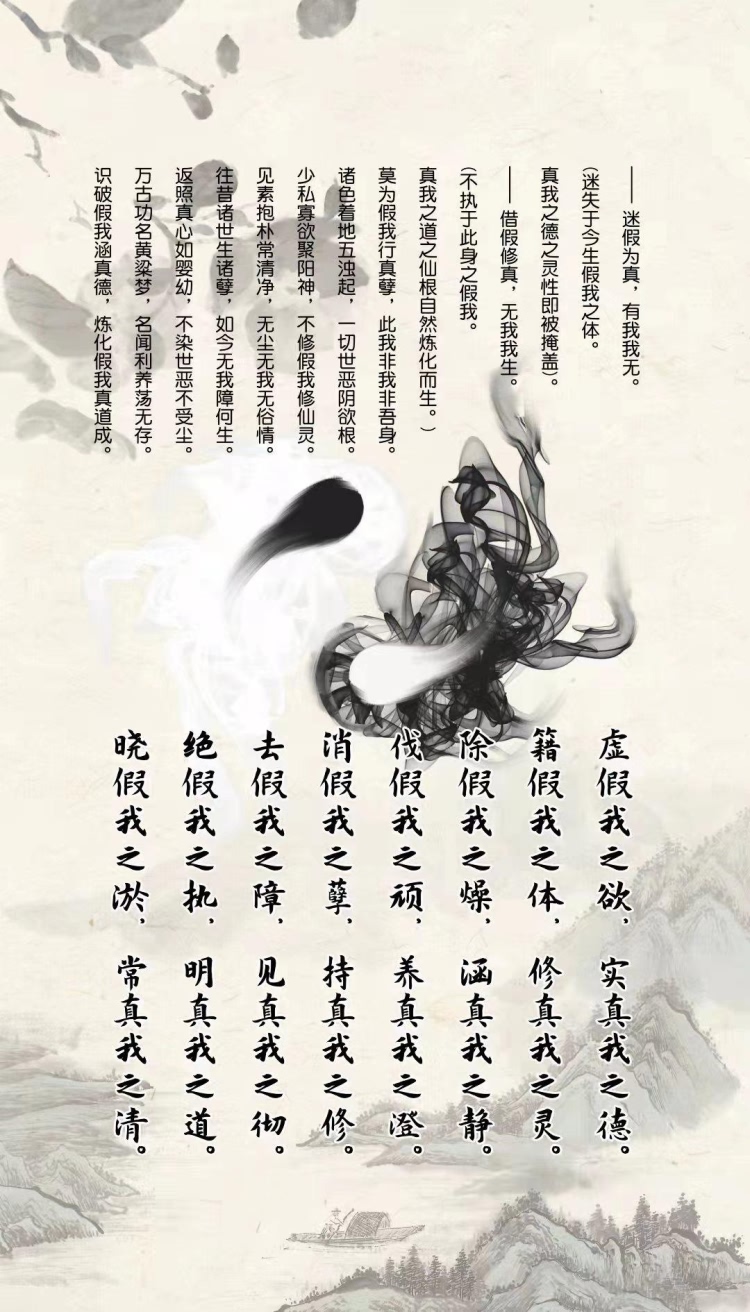 —— 迷假为真，有我我无。
(迷失于今生假我之体。
真我之德之灵性即被掩盖)。
—— 借假修真，无我我生。
(不执于此身之假我。
真我之道之仙根自然炼化而生。)
莫为假我行真孽，此我非我非吾身。
诸色着地五浊起，一切世恶阴欲根。
少私寡欲聚阳神，不修假我修仙灵。
见素抱朴常清净，无尘无我无俗情。
往昔诸世生诸孽，如今无我障何生。
返照真心如婴幼，不染世恶不受尘。
万古功名黄粱梦，名闻利养荡无存。
识破假我涵真德，炼化假我真道成。
虚假我之欲，实真我之德。
籍假我之体，修真我之灵。
除假我之燥，涵真我之静。
伐假我之顽，养真我之澄。
消假我之孽，持真我之修。
去假我之障，见真我之彻。
绝假我之执，明真我之道。
晓假我之淤，常真我之清。